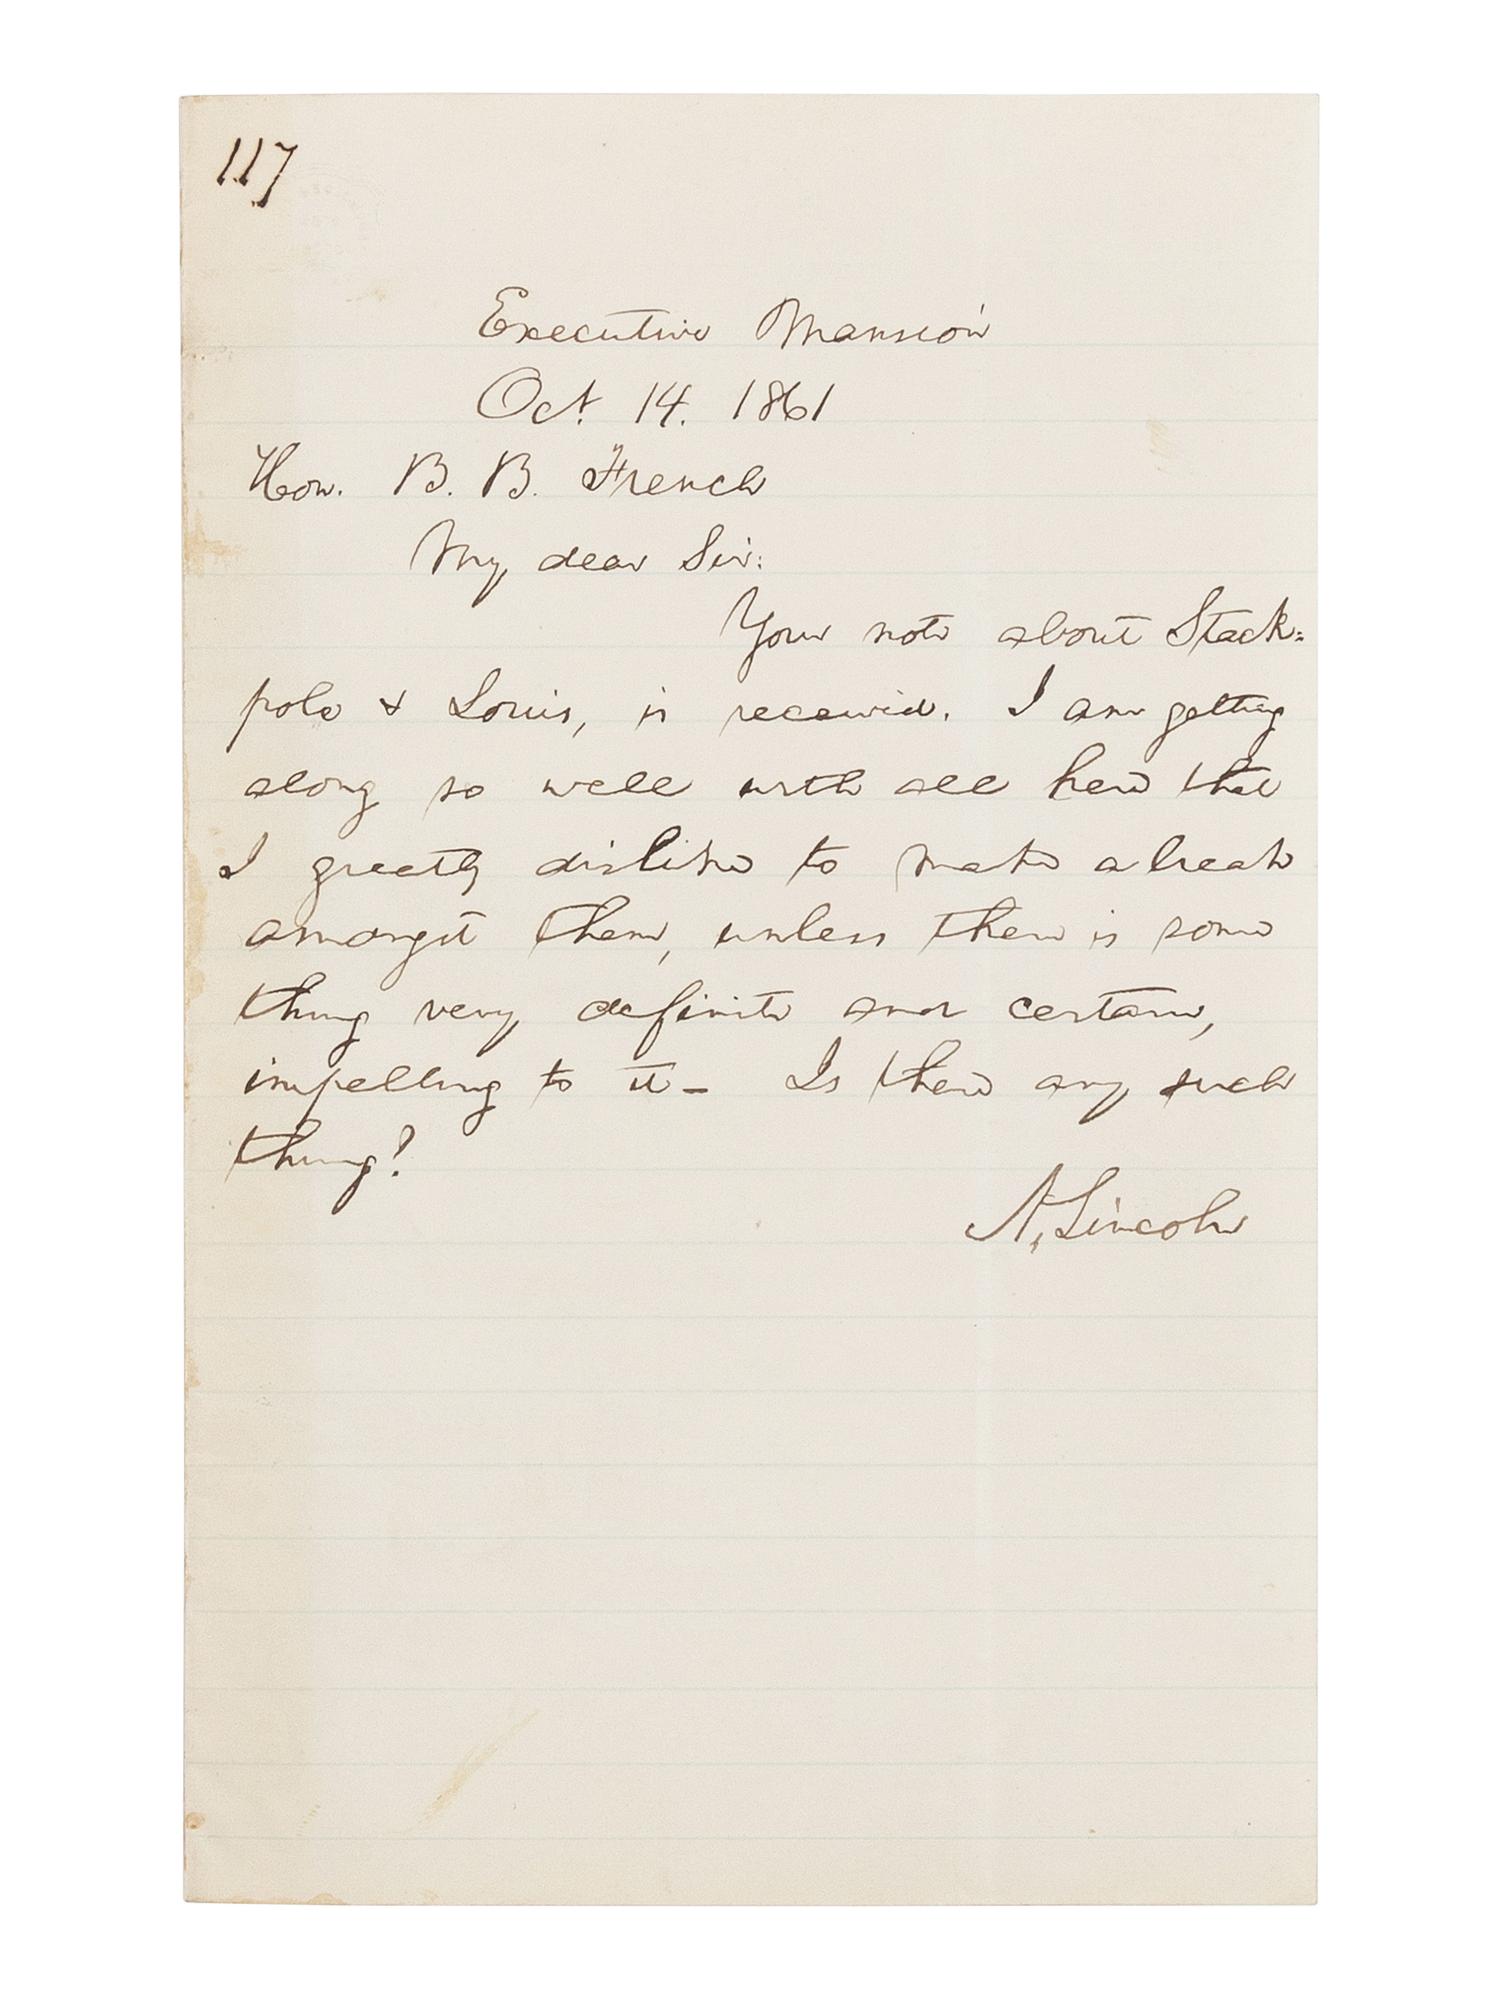 117
Executive Mansion
Oct. 14. 1861
Hon. B. B. French
My dear Sir:
Your note about Stack=
pole & Louis, is received. I am getting
along so well with all here that
I greatly dislike to make a break
amongst them, unless there is some
thing very definite and certain,
impelling to it— Is there any such
thing?
A. Lincoln